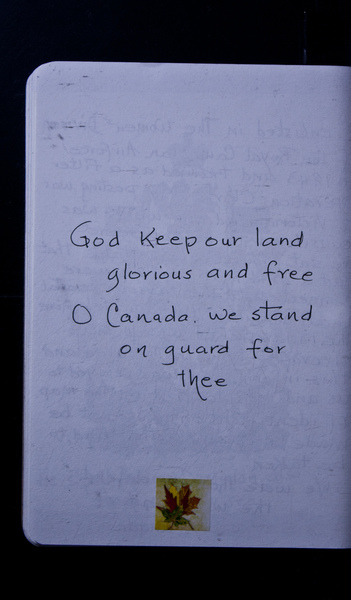 God Keep our land
glorious and free
O Canada. we stand
on guard for
thee